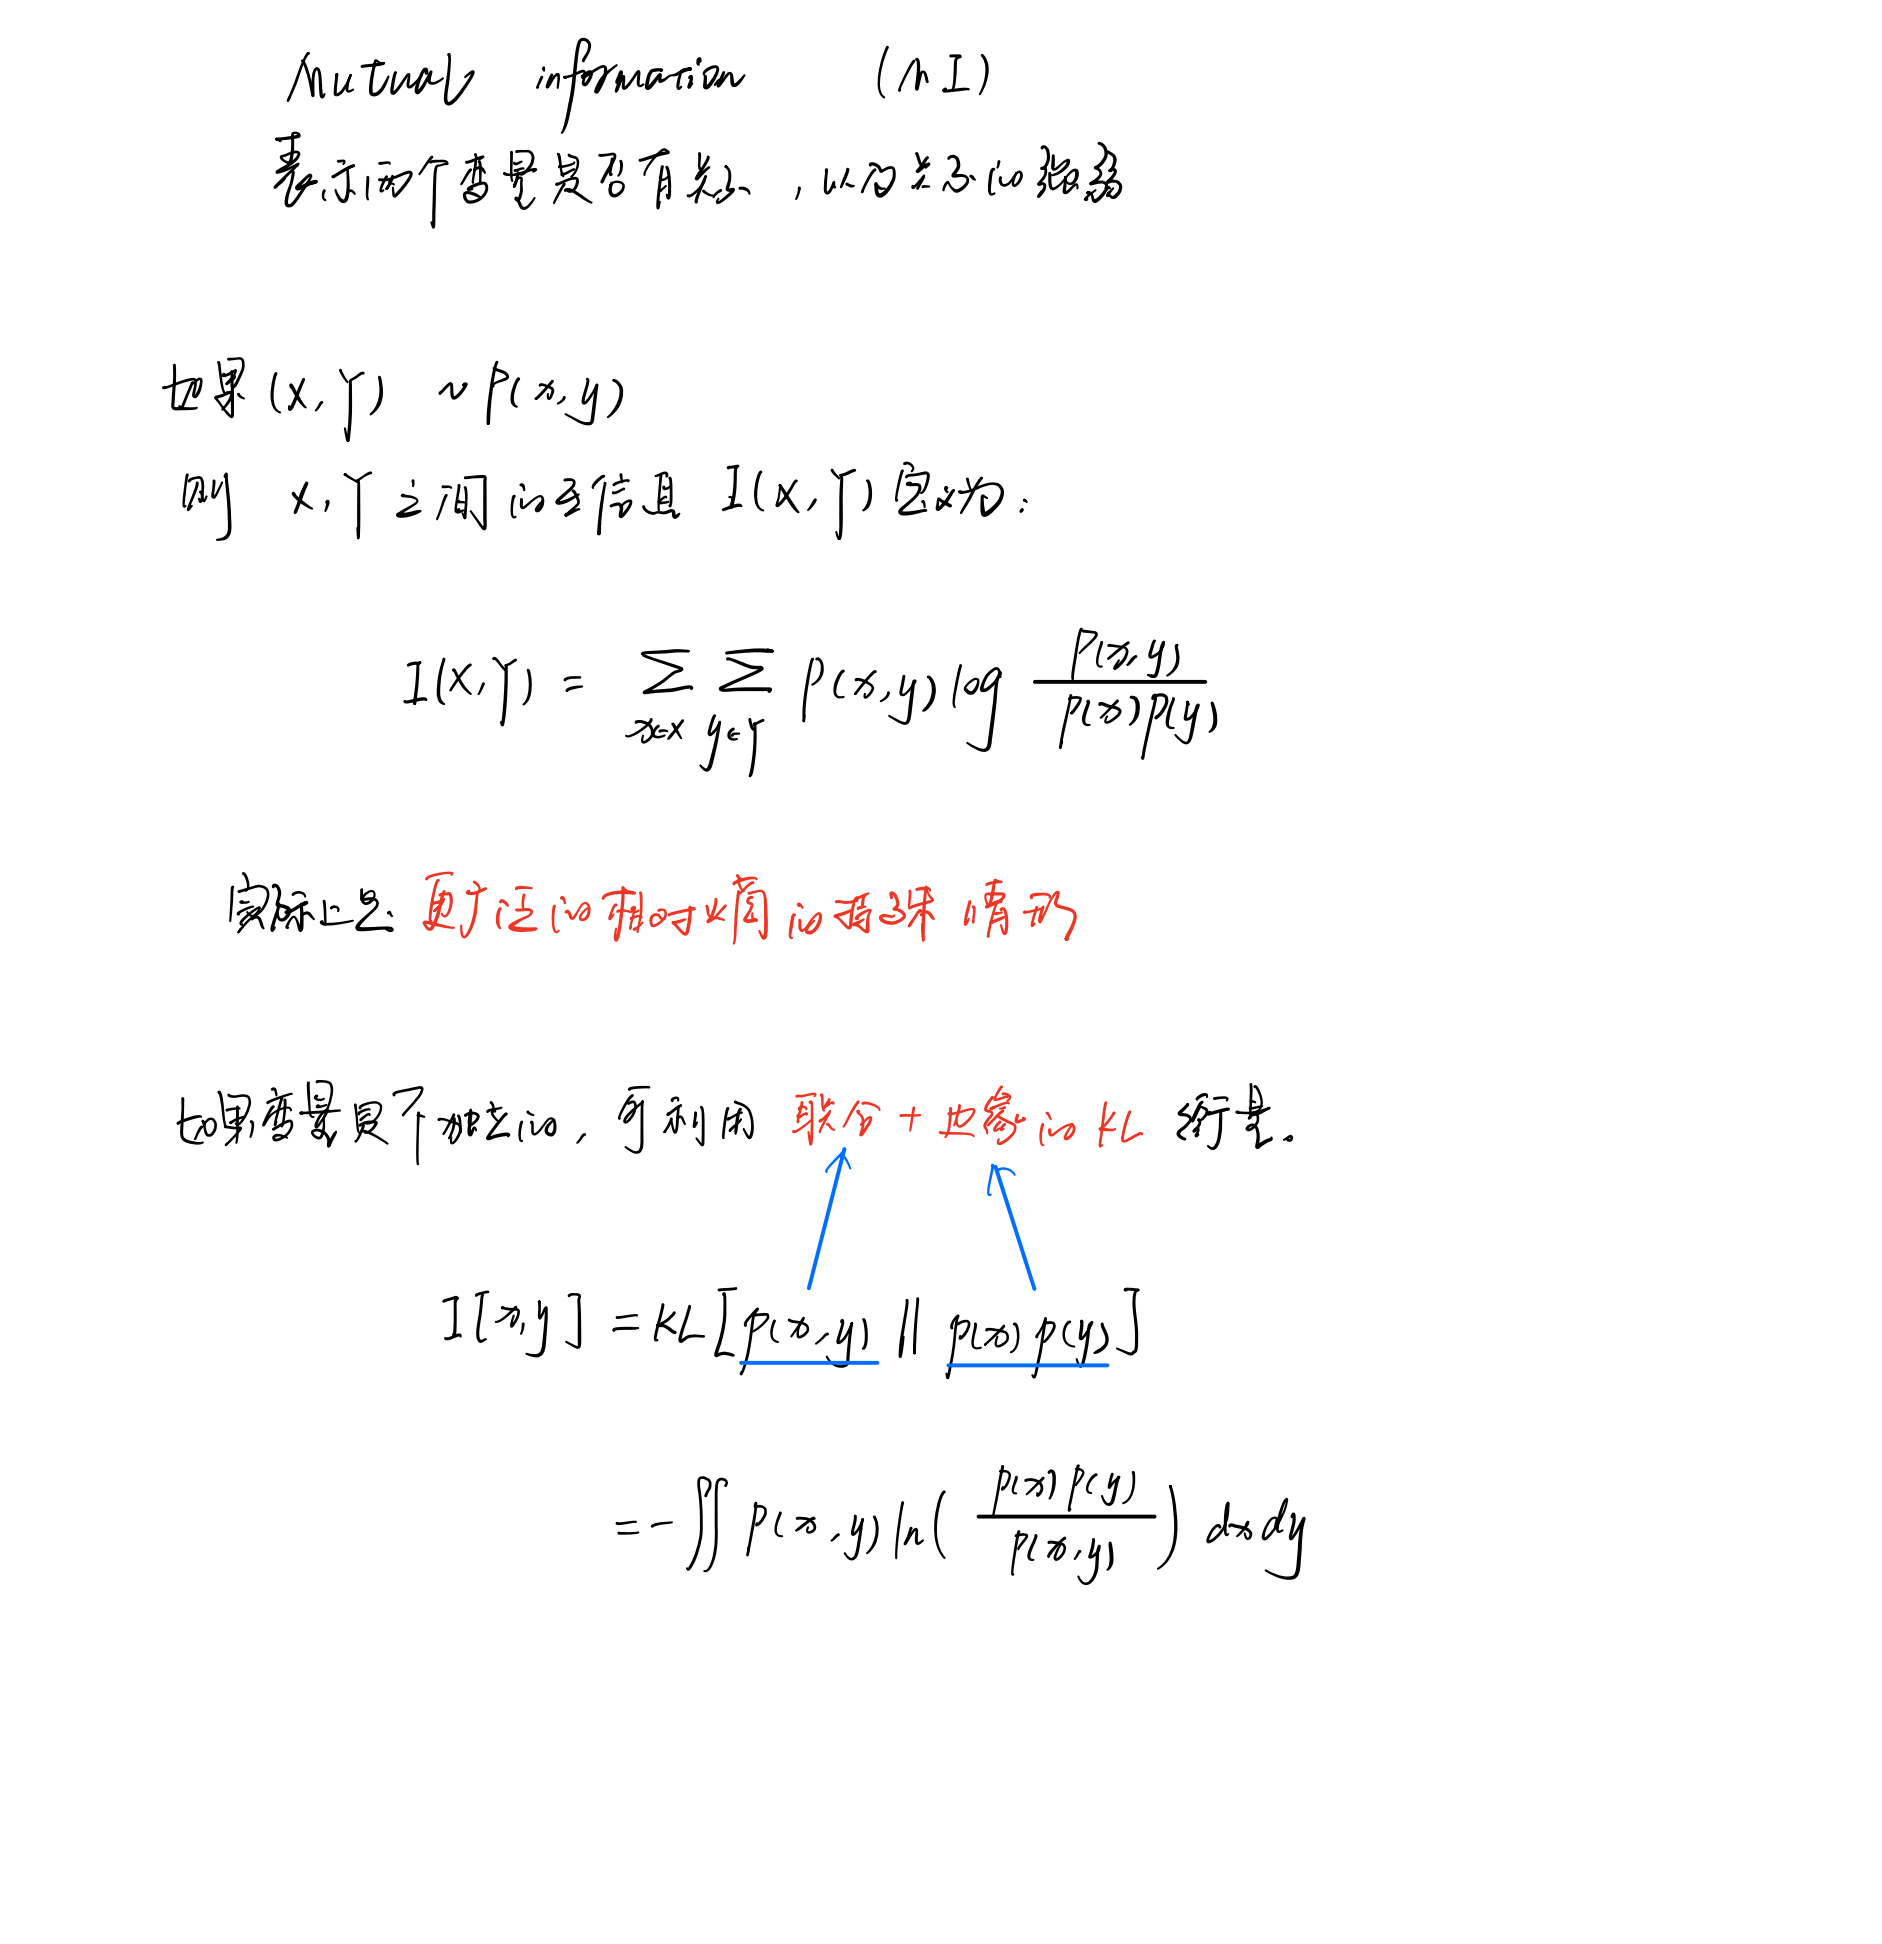 Mutual information (MI)
表示两个变量是否有关，以及关系的强弱
如果(X,Y) ~ P(x,y)
则 X,Y之间的互信息 I(X,Y)定义为：
I(X,Y) = ∑_{x∈X} ∑_{y∈Y} P(x,y) log \frac{P(x,y)}{P(x)P(y)}
实际上是 更广泛的相对熵的特殊情形
如果变量是不独立的，可利用 联分 + 边密的KL 衡量。
I[x,y] = KL[p(x,y) || p(x)p(y)]
= -∬ P(x,y) ln( \frac{P(x)P(y)}{P(x,y)} ) dxdy